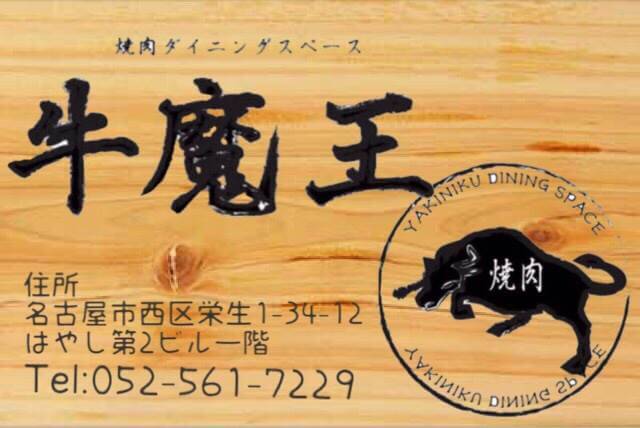 焼肉ダイニングスペース
牛魔王
YAKINIKU DINING SPACE
焼肉
YAKINIKU DINING SPACE
住所
名古屋市西区栄生1-34-12
はやし第2ビル一階
Tel:052-561-7229